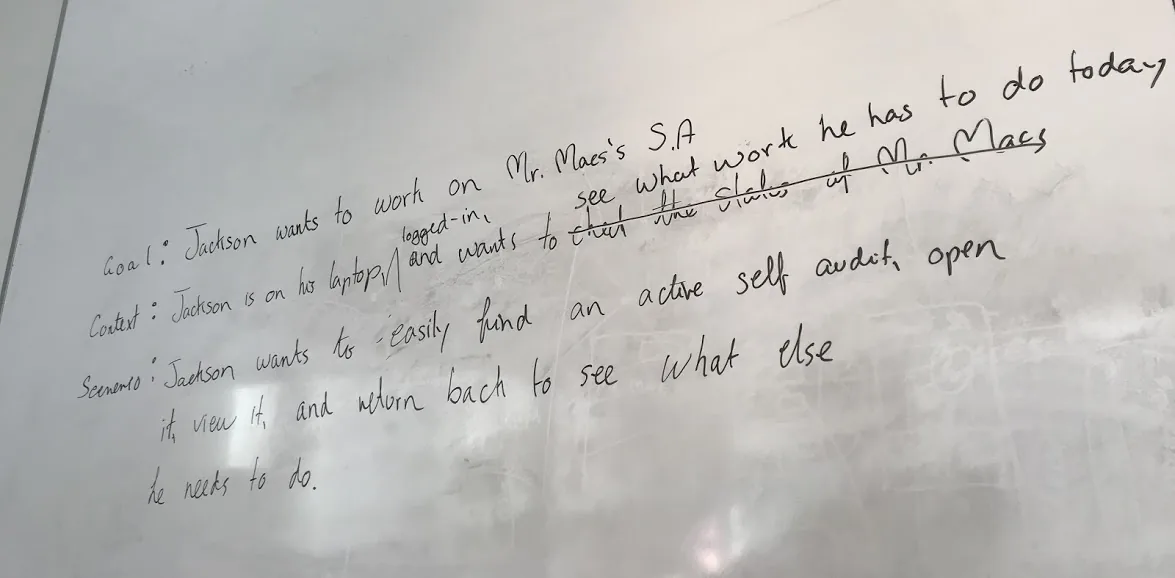 Goal: Jackson wants to work on Mr. Maes's S.A
Context: Jackson is on his laptop, logged-in, and wants to see what work he has to do today
check the status of Mr. Maes
Scenerio: Jackson wants to easily find an active self audit, open
it, view it, and return back to see what else
he needs to do.